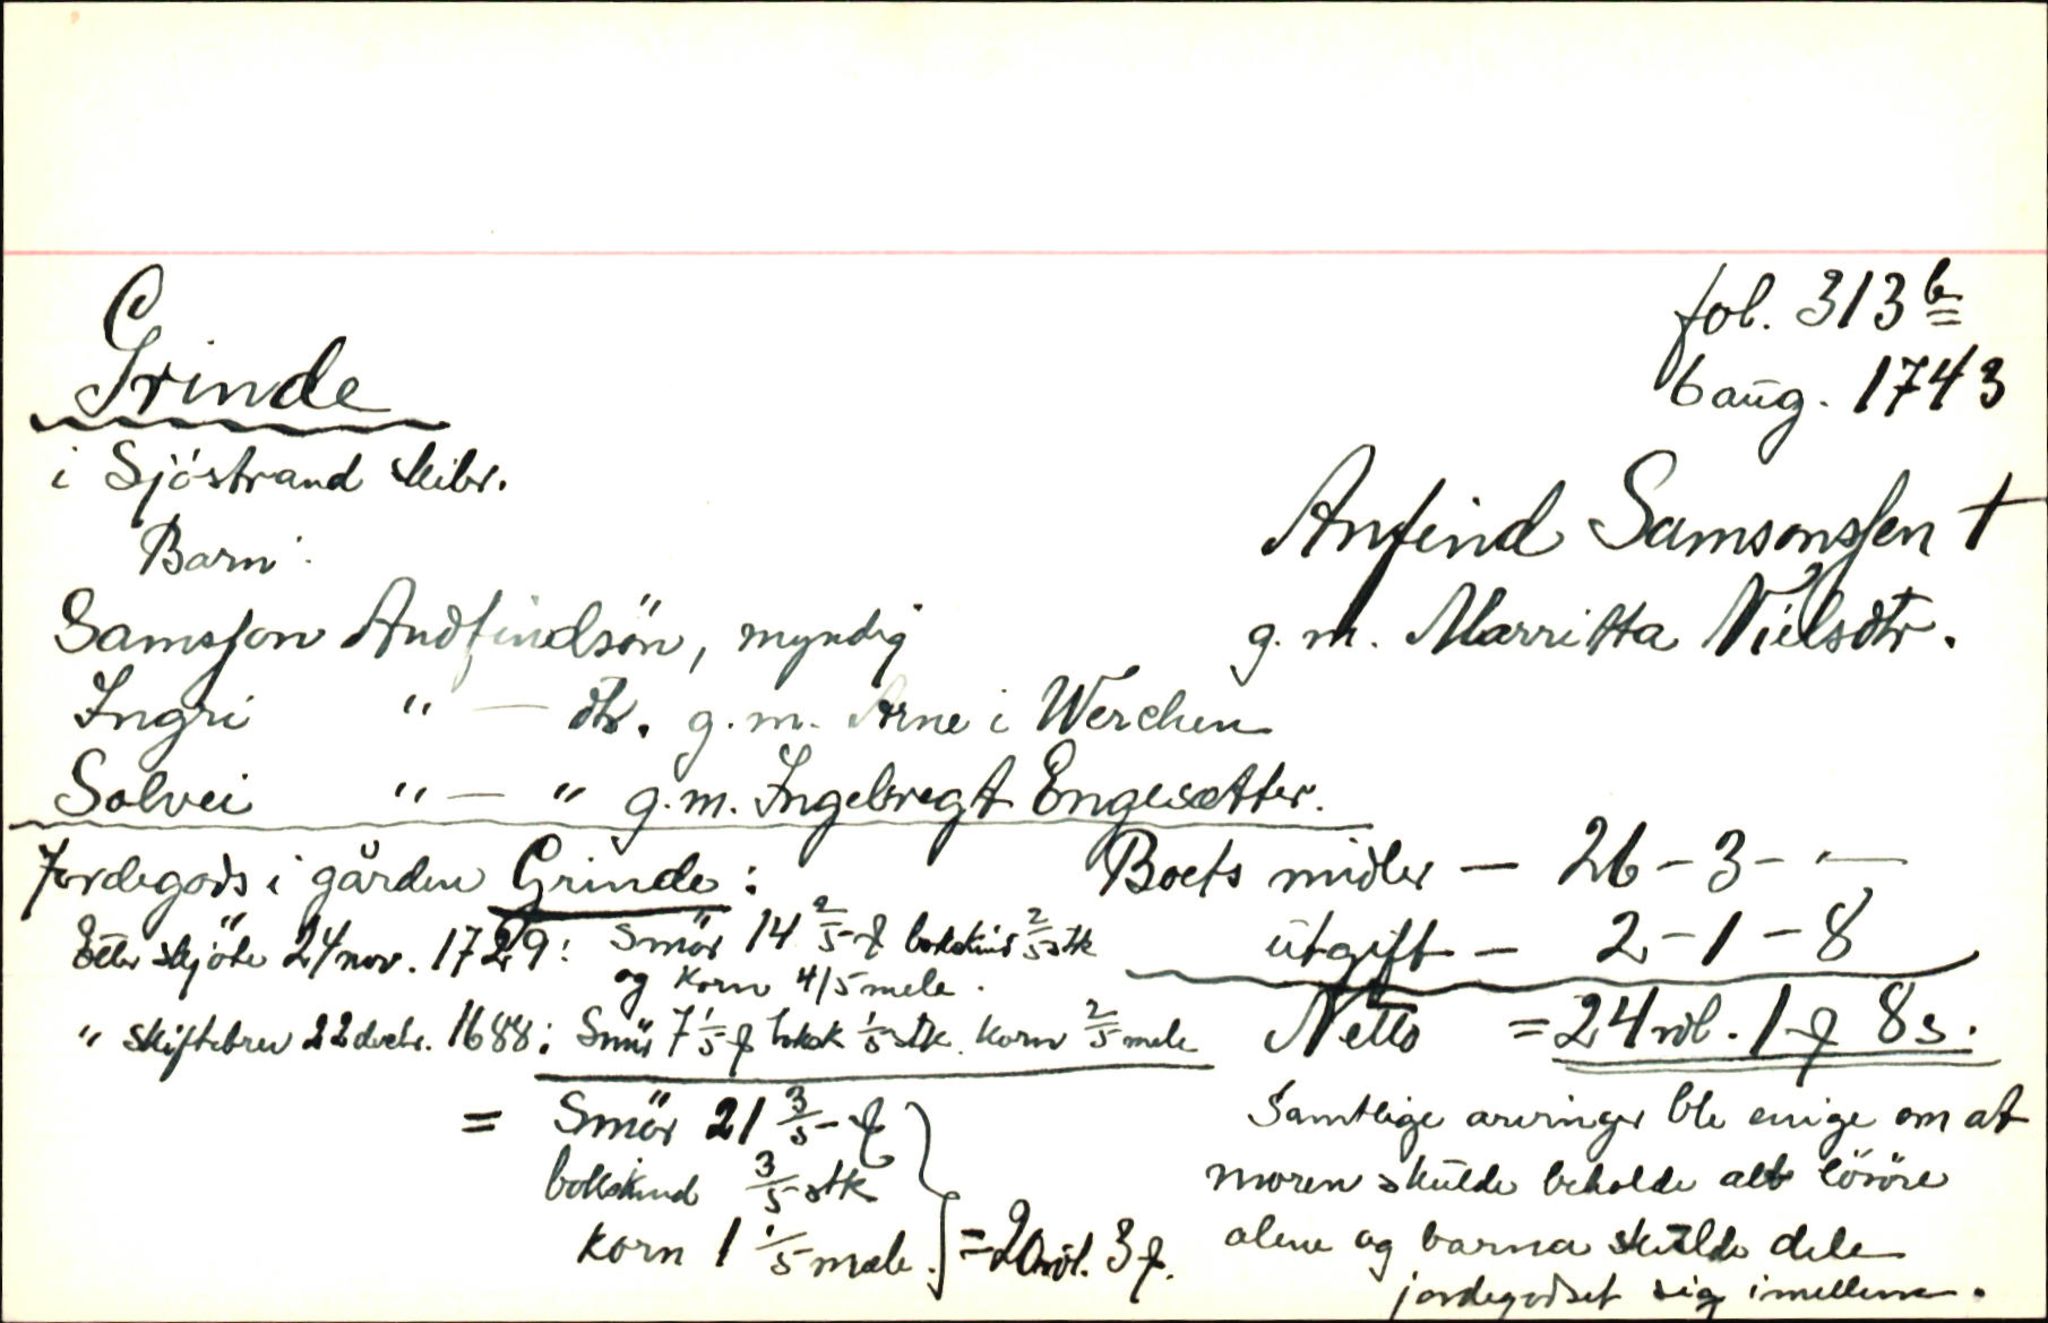 fol. 313 b
6 aug. 1743
Grinde
i Sjöstrand skibr.
Anfind Samsonssen †
g. m. Marritta Nielsdtr.
Barn:
Samsson Andfindsön, myndig
Ingri " — dtr. g. m. Arne i Werchen
Solvei " — " g. m. Ingebregt Engesætter.
Jordegods i gården Grinde:
Etter skjöte 24 nov. 1729: Smör 14 2/5 ƿ bokskind 2/5 stk
og korn 4/5 mele.
" skiftebrev 22 decbr. 1688: Smör 7 1/5 ƿ boksk 1/5 stk. korn 2/5 mele
= Smör 21 3/5 ƿ
bokskind 3/5 stk
korn 1 1/5 mæle. = 20 rdl. 3 ƿ.
Boets midler — 26 - 3 - —
utgift — 2 - 1 - 8
Netto = 24 rdl. 1 ƿ 8 s.
Samtlige arvinger ble enige om at
moren skulde beholde alt lösöre
alene og barna skulde dele
jordegodset sig imellem.